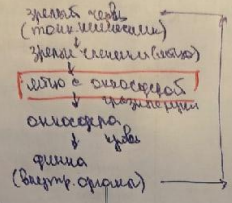 зрелый червь
(тонк. кишечник)
зрелые членики (матка)
яйцо с онкосферой
онкосфера
кровь
финна
(внутр. органа)